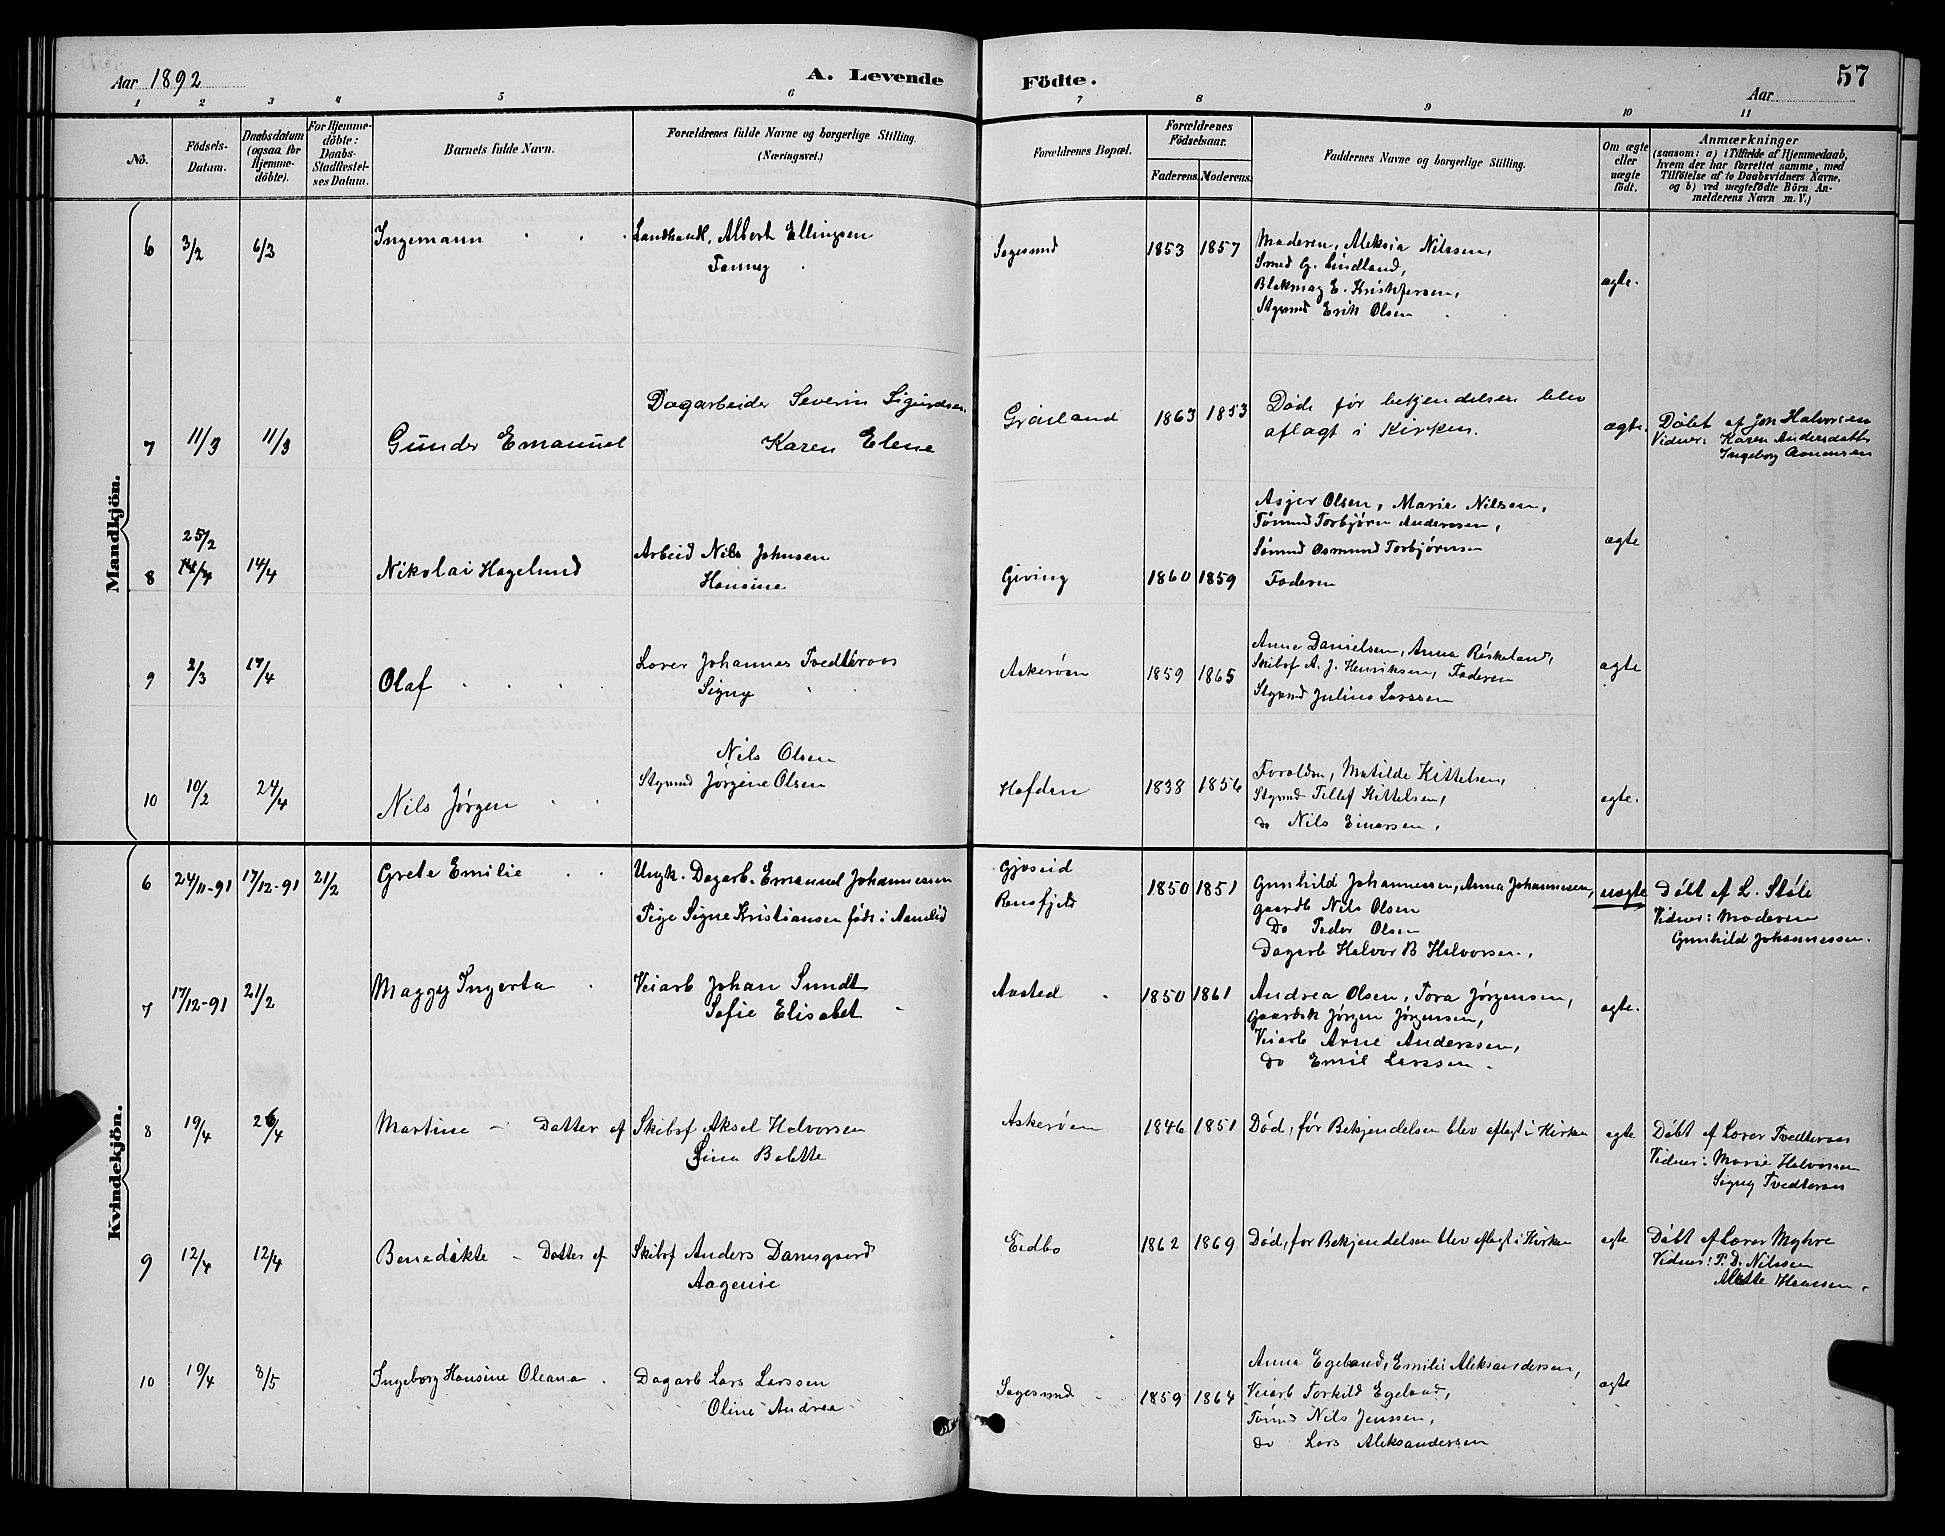 Aar 1892
A. Levende Födte.
57
Aar
1 2 3 4 5 6 7 8 9 10 11
No.
Födsels-Datum.
Daabsdatum (ogsaa for Hjemme-döbte).
For Hjemme-döbte: Daabs-Stadfæstel-ses Datum.
Barnets fulde Navn.
Forældrenes fulde Navne og borgerlige Stilling. (Næringsvei.)
Forældrenes Bopæl.
Forældrenes Födselsaar.
Faderens. Moderens.
Faddernes Navne og borgerlige Stilling.
Om ægte eller uægte födt.
Anmærkninger
(saasom: a) i Tilfælde af Hjemmedaab,
hvem der har forrettet samme, med
Tilföielse af to Daabsvidners Navne,
og b) ved uægtefödte Börn An-
melderens Navn m. V.)
Mandkjön.
6 3/2 6/3 Ingemann Landhandl. Albert Ellingsen Sagesund 1853 1857 Moderen, Aleksia Nilssen,
Fanny Smed G. Lindland,
Blokmag E. Kristofersen, ægte.
Styrmd Erik Olsen
Dagarbeider Severin Sigurdsen Gråsland 1863 1853 Døde før bekjendelsen blev
7 11/3 11/3 Gunder Emanuel Karen Elene aflagt i Kirken. ægte. Døbt af Jon Halvorsen
Vidner: Karen Andersdatt
Ingeborg Aanonsen
25/2 Asjer Olsen, Marie Nilsen,
Tømmd Torbjørn Anderssen,
Arbeid Nils Johnsen Sømmd Osmund Torbjørnsen ægte
8 14/4 14/4 Nikolai Hagelund Hansine Giving 1860 1859 Faderen
Lærer Johannes Tvedteraas Anne Danielsen, Anna Røskeland,
9 2/3 17/4 Olaf Signy Askerøen 1859 1865 Skibsf A. J. Henriksen, Faderen ægte
Styrmd Julius Larssen
Nils Olsen
10 10/2 24/4 Nils Jørgen Styrmd Jørgine Olsen Hafden 1838 1856 Foraldrn, Matilde Kittelsen,
Styrmd Tellef Kittelsen, ægte.
do Nils Einarsen,
Kvindekjön.
6 24/11-91 17/12-91 21/2 Grete Emilie Ungk. Dagarb. Emanuel Johannessen Gjøseid 1850 1851 Gunhild Johannessen, Anna Johannessen, uægte Döbt af L. Støle
Pige Signe Kristiansen født i Aamlid Ramsfjeld Gaardb Nils Olsen Vidner: Moderen
Do Peder Olsen Gunhild Johannessen.
Dagarb Halvor B Halvorsen,
7 17/12-91 21/2 Maggy Ingerta Veiarb Johan Sundt Aasted 1850 1861 Andrea Olsen, Tora Jørgensen,
Sofie Elisabet Gaardsk Jørgen Jørgensen, ægte.
Veiarb Arne Anderssen,
do Emil Larssen.
8 19/4 26/4 Martine - Datter af Skibsf Aksel Halvorsen Askerøen 1846 1851 Død, før Bekjendelsen blev aflagt i Kirken ægte Döbt af Lærer Tvedteraas
Lina Bolette Vidner: Marie Halvorsen
Signy Tvedteraas
9 12/4 12/4 Benedikte - Datter af Skibsf Anders Damsgaard Eidbo 1862 1869 Død, før Bekjendelsen blev aflagt i Kirken ægte Döbt af Lærer Myhre
Aagenie Vidner: P. D. Nilssen
Alette Hansen.
10 19/4 8/5 Ingeborg Hansine Oleana Dagarb Lars Larssen Sagesund 1859 1864 Anna Egeland, Emilie Aleksandersen,
Oline Andrea Veiarb Torkild Egeland, ægte
Tømmd Nils Jenssen,
do Lars Aleksandersen